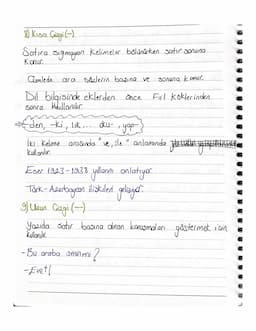 8) Kısa Çizgi (-)
Satıra sığmayan Kelimeler bölünürken satır sonuna
Konur.
Cümlede ara sözlerin başına ve sonuna Konur.
Dil bilgisinde eklerden önce Fiil Köklerinden
sonra Kullanılır.
-den, -ki, -lik... du-, yap-
İki Kelime arasında "ve, ile" anlamında
Kullanılır.
Eser 1923-1938 yıllarını anlatıyor.
Türk-Azerbaycan ilişkileri gelişiyor.
9) Uzun Çizgi (—)
Yazıda satır başına alınan konuşmaları göstermek için
Kullanılır.
-Bu araba senin mi?
-Evet!